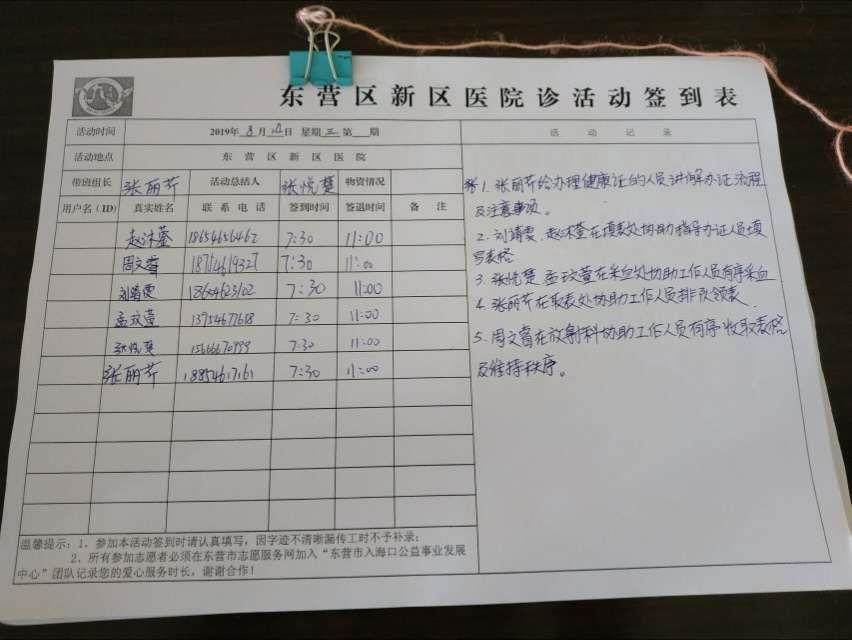 东营区新区医院诊活动签到表
活动时间 2019年8月14日 星期三 第 期 活动记录
活动地点 东营区新区医院
带班组长 张丽芹 活动总结人 张悦楚 物资情况
用户名(ID) 真实姓名 联系电话 签到时间 签退时间 备注
赵沐蓥 18654656462 7:30 11:00
周文睿 18714619327 7:30 11:00
刘靖雯 7:30 11:00
孟玟萱 13754677618 7:30 11:00
张悦楚 15666670999 7:30 11:00
张丽芹 18854617161 7:30 11:00
1. 张丽芹给办理健康证的人员讲解办证流程
及注意事项。
2. 刘靖雯、赵沐蓥在填表处协助指导办证人员填
写表格
3. 张悦楚 孟玟萱在采血处协助工作人员有序采血
4. 张丽芹在取表处协助工作人员排队领表.
5. 周文睿在放射科协助工作人员有序收取表格
及维持秩序。
温馨提示:1、参加本活动签到时请认真填写,因字迹不清晰漏传工时不予补录;
2、所有参加志愿者必须在东营市志愿服务网加入“东营市入海口公益事业发展
中心”团队记录您的爱心服务时长,谢谢合作!